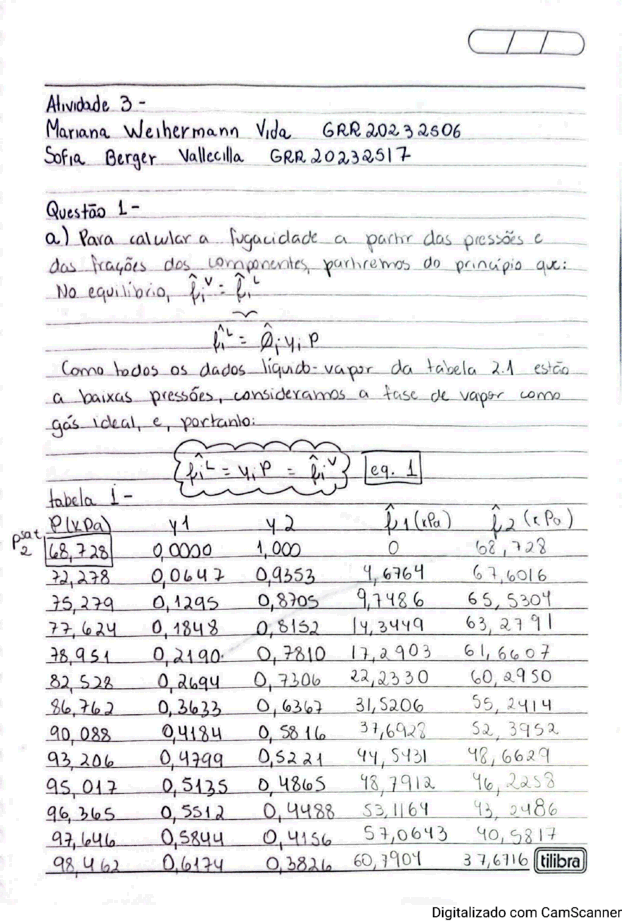 Atividade 3 -
Mariana Weihermann Vida GRR20232506
Sofia Berger Vallecilla GRR20232517
Questão 1-
a) Para calcular a fugacidade a partir das pressões e
das frações dos componentes, partiremos do princípio que:
No equilíbrio, f̂iⱽ = f̂iᴸ
f̂iᴸ = ∅̂i yi P
Como todos os dados líquido-vapor da tabela 2.1 estão
a baixas pressões, consideramos a fase de vapor como
gás ideal, e, portanto:
f̂iᴸ = yi P = f̂iⱽ eq. 1
tabela 1-
P(kPa) y1 y2 f̂1(kPa) f̂2(kPa)
P2sat 68,728 0,0000 1,000 0 68,728
72,278 0,0647 0,9353 4,6764 67,6016
75,279 0,1295 0,8705 9,7486 65,5304
77,624 0,1848 0,8152 14,3449 63,2791
78,951 0,2190 0,7810 17,2903 61,6607
82,528 0,2694 0,7306 22,2330 60,2950
86,762 0,3633 0,6367 31,5206 55,2414
90,088 0,4184 0,5816 37,6928 52,3952
93,206 0,4779 0,5221 44,5431 48,6629
95,017 0,5135 0,4865 48,7912 46,2258
96,365 0,5512 0,4488 53,1164 43,2486
97,646 0,5844 0,4156 57,0643 40,5817
98,462 0,6174 0,3826 60,7904 37,6716
tilibra
Digitalizado com CamScanner